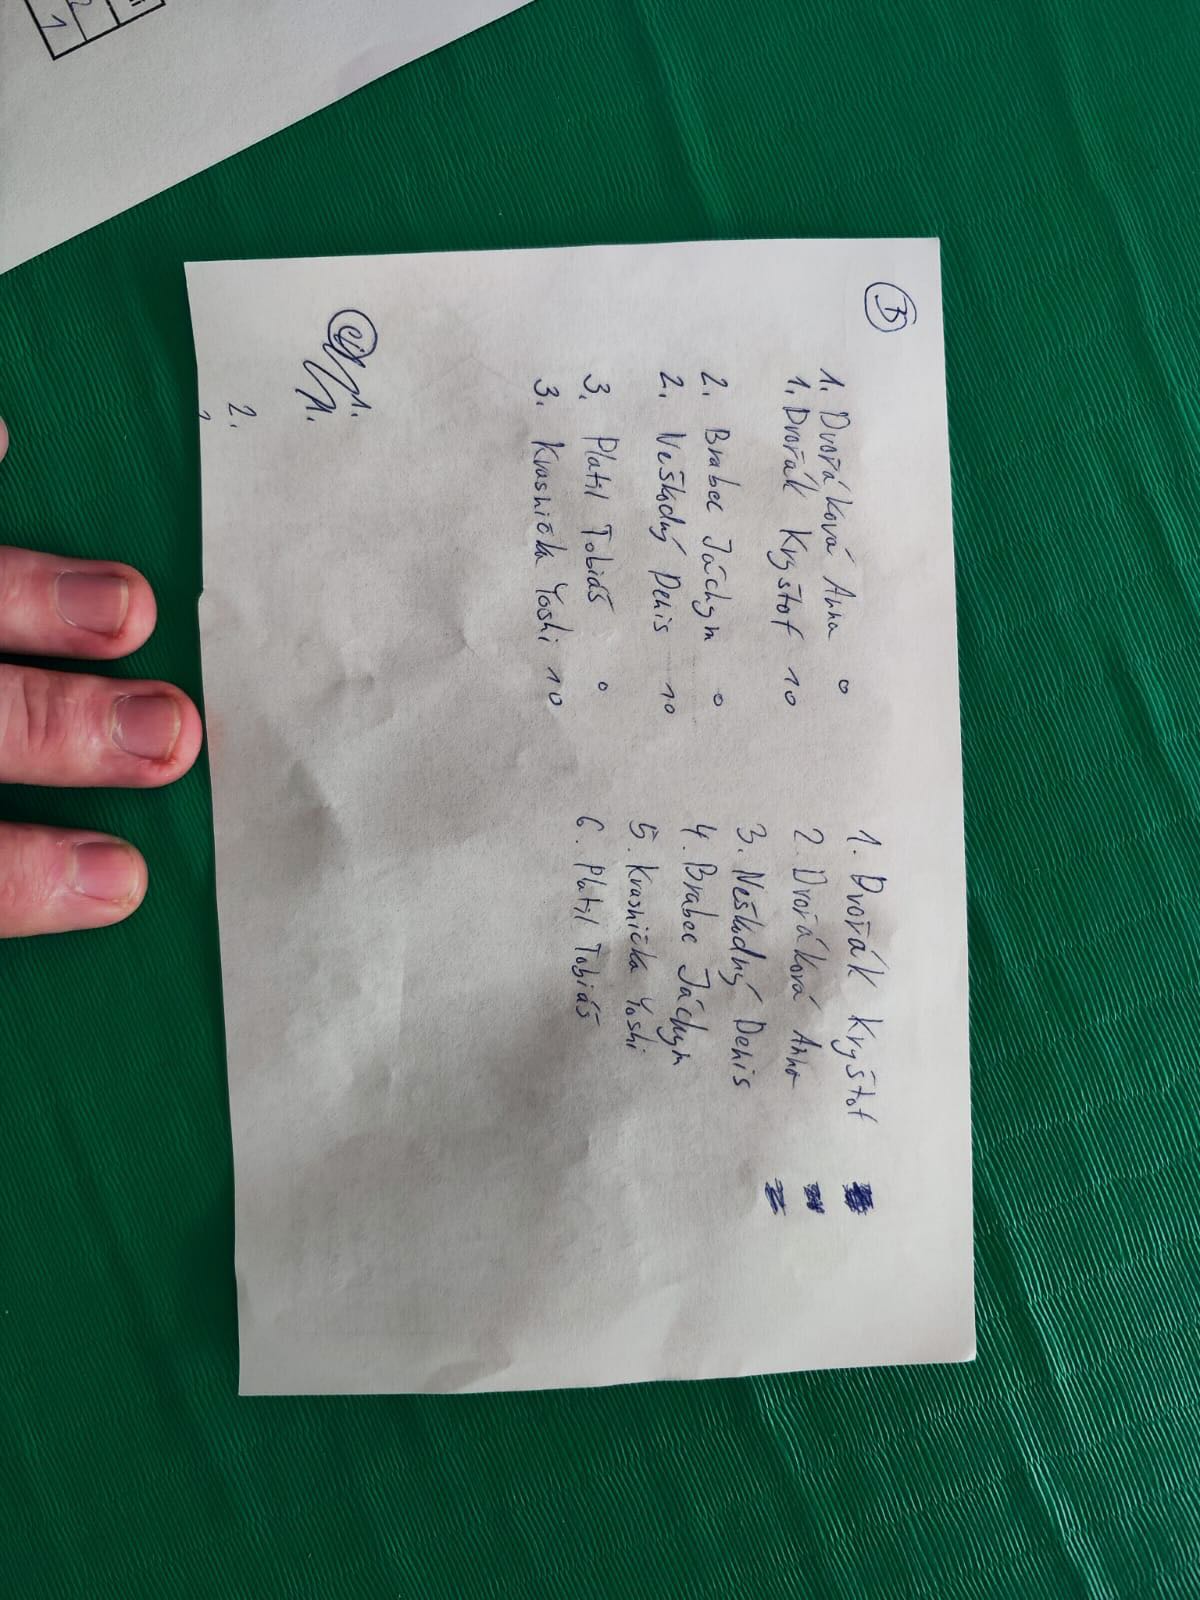 B
1. Dvořáková Anna 0
1. Dvořák Kryštof 10
2. Brabec Jáchym 0
2. Neškodný Denis 10
3. Platil Tobiáš 0
3. Krasnička Yoshi 10
1. Dvořák Kryštof
2. Dvořáková Anna
3. Neškodný Denis
4. Brabec Jáchym
5. Krasnička Yoshi
6. Platil Tobiáš
1.
1.
2.
1
2